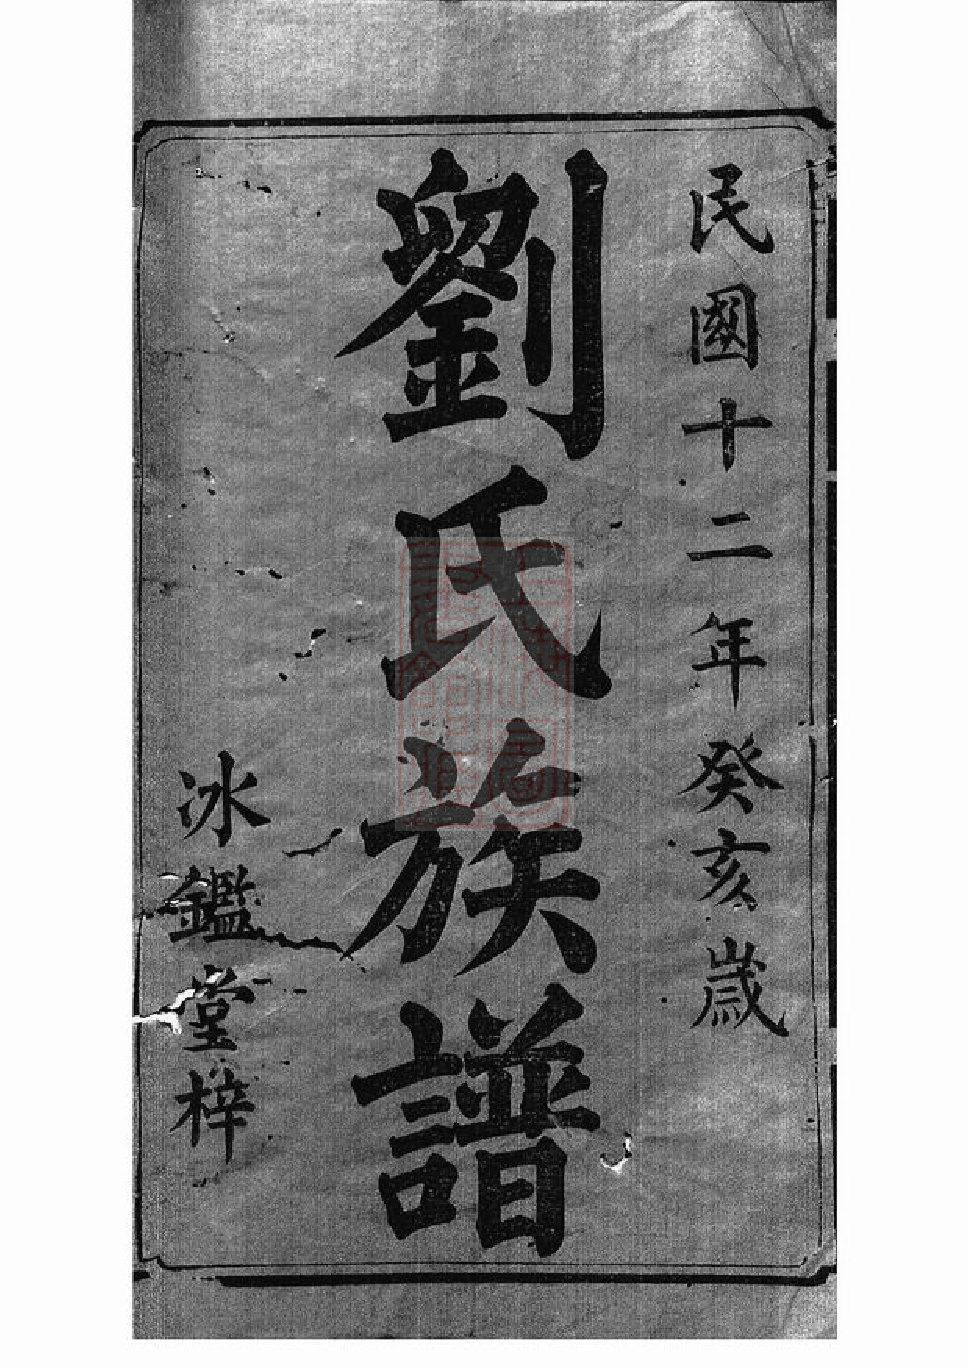 民國十二年癸亥歲
劉氏族譜
冰鑑堂梓